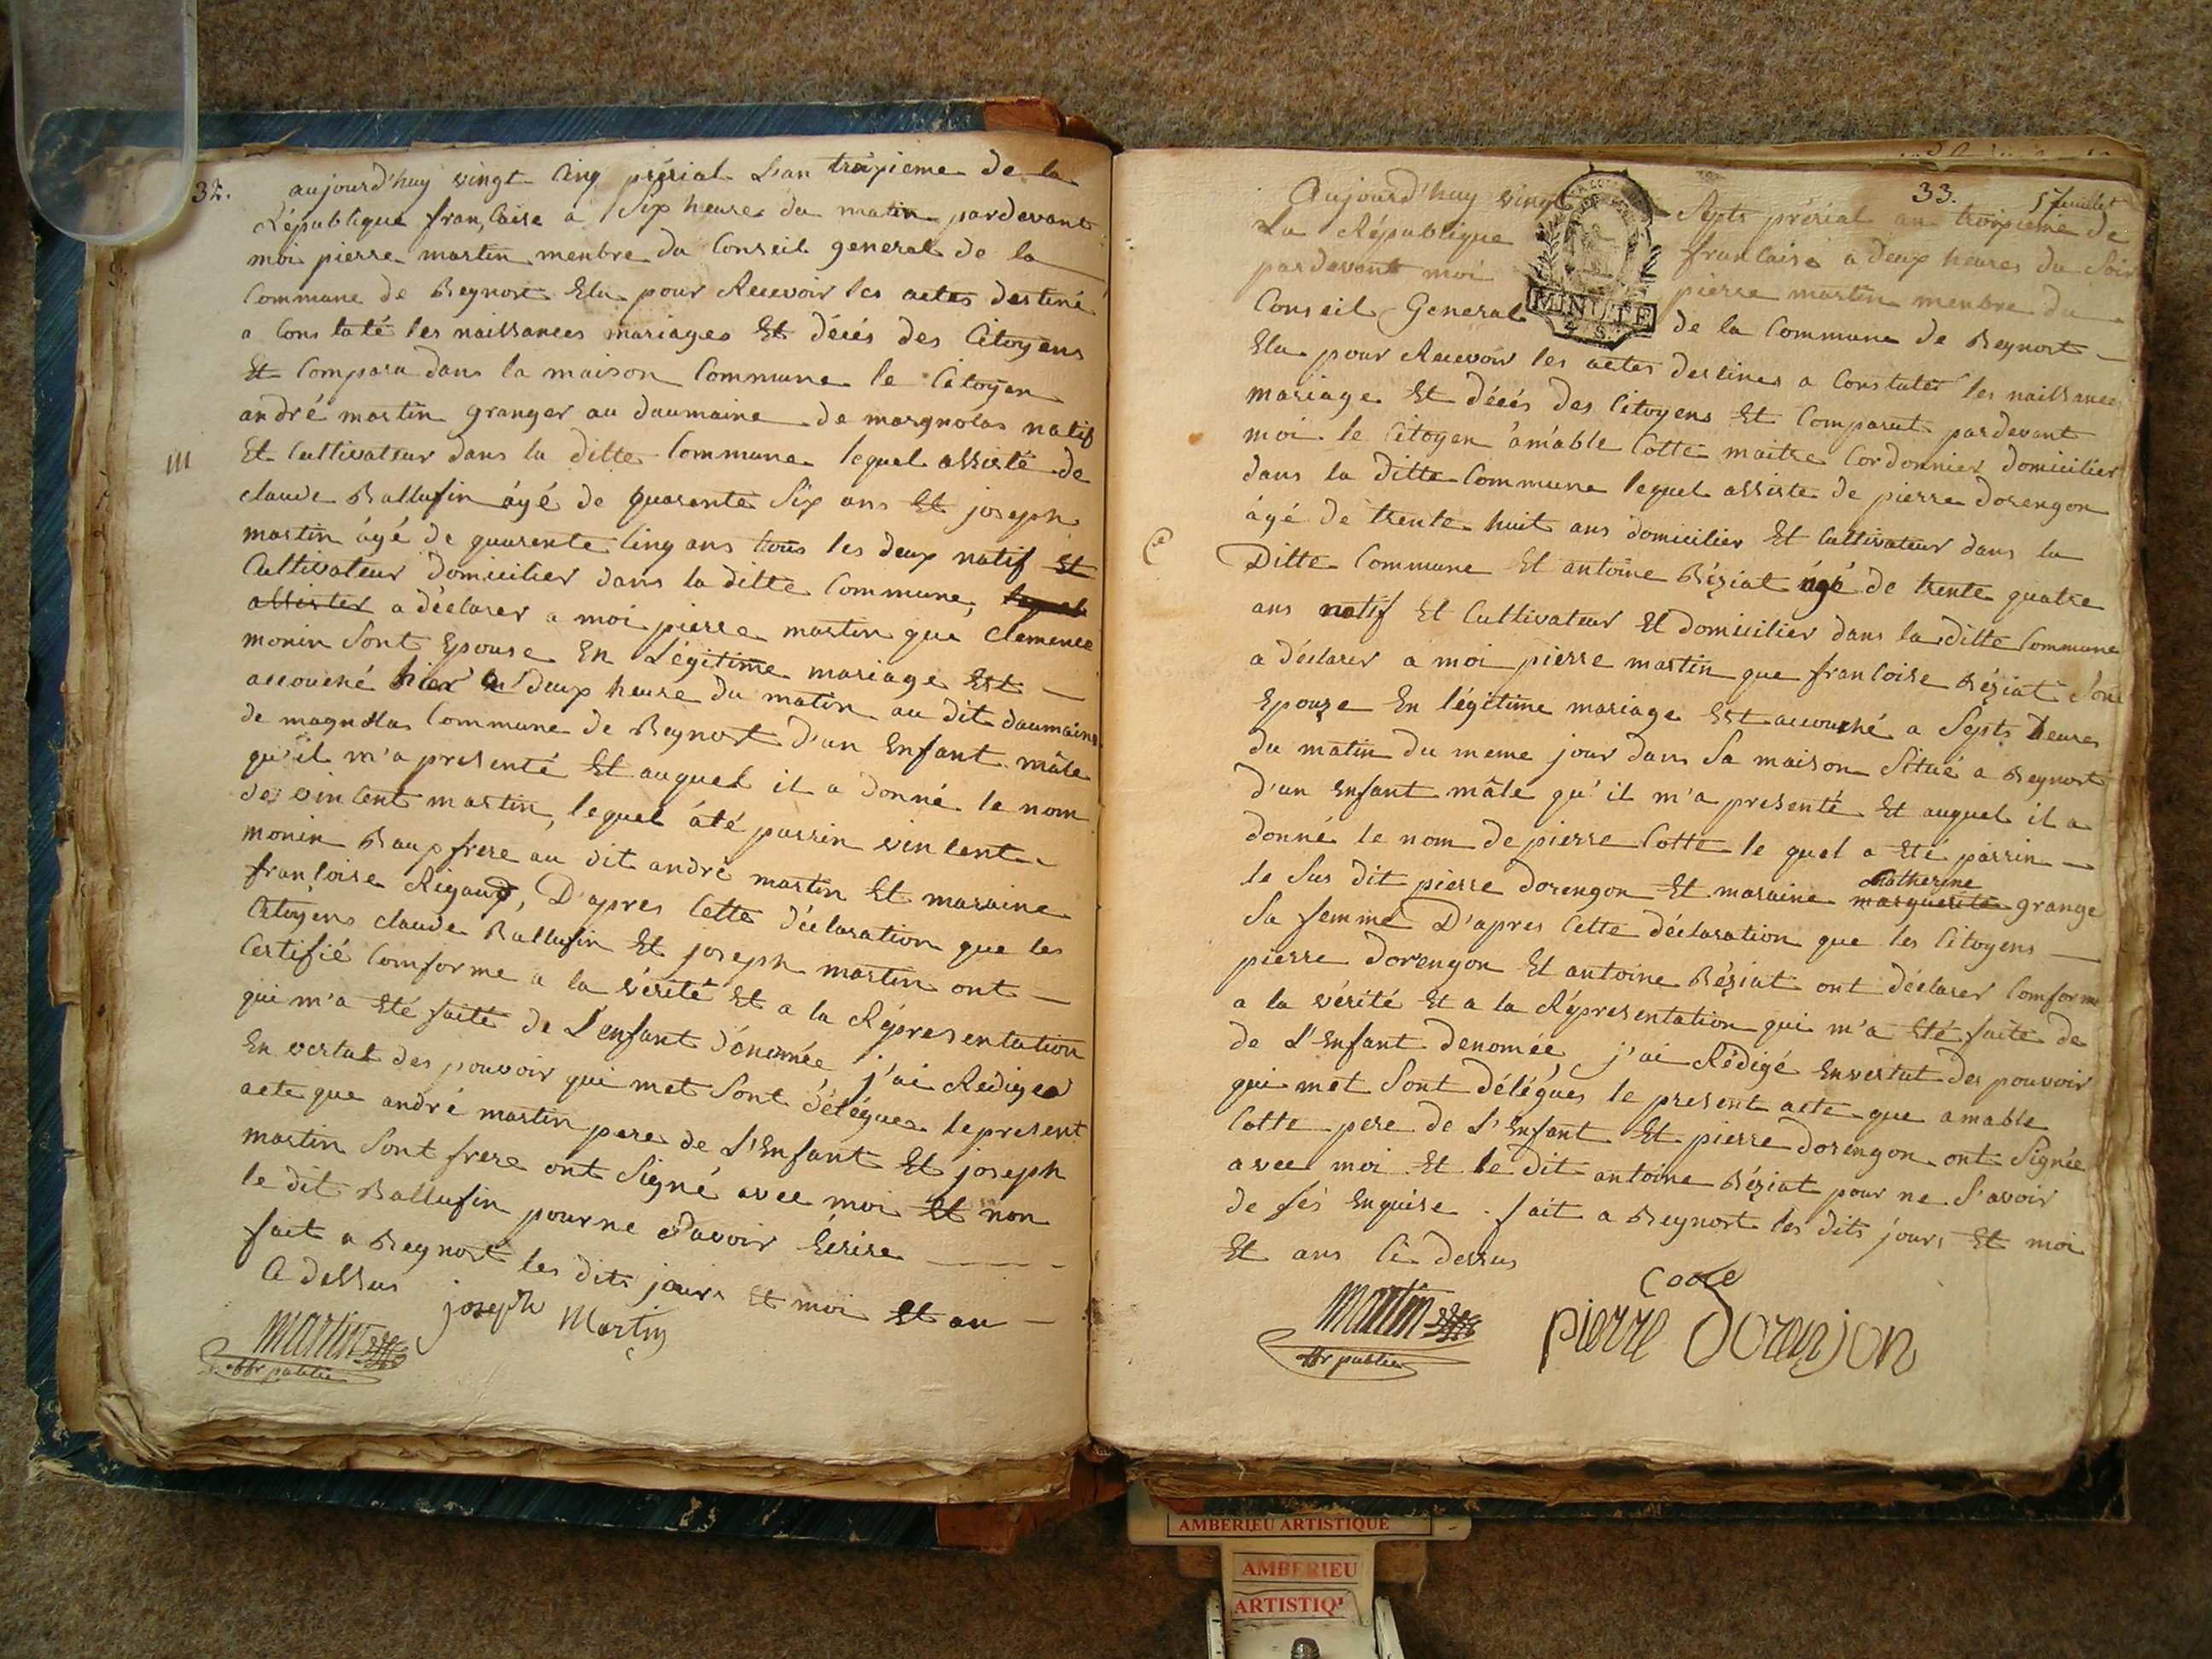 32.
aujourd'huy vingt Cinq prérial L'an troisieme de la
République française a Six heure du matin pardevant
moi pierre martin menbre du Conseil general de la
Commune de Beynost Elu pour Recevoir les actes destiné
a Constaté les naissances mariages Et décés des Citoyens
Et Compara dans la maison Commune le Citoyen
andré martin granger au daumaine de margnolas natif
Et Cultivateur dans la ditte Commune lequel assisté de
claude Ballufin âgé de quarente Six ans Et joseph
martin âgé de quarente Cinq ans tous les deux natif Et
Cultivateur domicilier dans la ditte Commune, lequel
assister a déclarer a moi pierre martin que clemence
monin Sont Epouse En Légitime mariage Est
accouché hier a deux heure du matin au dit daumaine
de magnolas Commune de Beynost d'un Enfant mâle
qu'il m'a presenté Et auquel il a donné le nom
de vincent martin, lequel áté parrin vincent
monin Baupfrere au dit andré martin Et maraine
françoise Rigaud, D'apres Cette déclaration que les
Citoyens claude Ballufin Et joseph martin ont
Certifié Comforme a la vérité Et a la Répresentation
qui m'a Eté faite de L'enfant dénomée j'ai Rediger
En vertut des pouvoir qui met Sont délégues le present
acte que andré martin pere de L'Enfant Et joseph
martin Sont frere ont Signé avec moi Et non
le dit Ballufin pour ne Savoir Ecrire
fait a Beynost les dits jours Et moi Et an
Ci dessus
joseph Martin
martin
offr publié
33.
5 feuillet
Aujourd'huy vingt Septs prérial an troisieme de
La République francaise a deux heures du Soir
pardevant moi pierre martin menbre du
Conseil General de la Commune de Beynost
MINUTE
Elu pour Recevoir les actes destinés a Constater les naissances
mariage Et décés des Citoyens Et Comparut pardevant
moi le Citoyen amable Cotte maitre Cordonnier domicilier
dans la ditte Commune lequel assisté de pierre dorengon
âgé de trente huit ans domicilier Et Cultivateur dans la
Ditte Commune Et antoine Béziat âgé de trente quatre
ans natif Et Cultivateur Et domicilier dans la ditte Commune
a déclarer a moi pierre martin que francoise Béziat Son
Epouze En légitime mariage Est accouché a Septs heures
du matin du meme jour dans Sa maison Situé a Beynost
d'un Enfant mâle qu'il m'a presenté Et auquel il a
donné le nom de pierre Cotte le quel a Eté parrin
Catherine
le Sus dit pierre dorengon Et maraine marguerite grange
Sa femme D'apres Cette déclaration que les Citoyens
pierre dorengon Et antoine Béziat ont déclarer Comforme
a la vérité Et a la Répresentation qui m'a Eté faite de
de L'Enfant denomée, j'ai Rédigé En vertut des pouvoir
qui met Sont délégues le present acte que amable
Cotte pere de L'Enfant Et pierre dorengon ont Signée
avec moi Et le dit antoine Béziat pour ne S'avoir
de Sés Enquise . fait a Beynost les dits jours Et moi
Et ans Ci dessus
martin
offr publié
pierre dorenjon
AMBERIEU ARTISTIQUE
AMBERIEU
ARTISTIQ